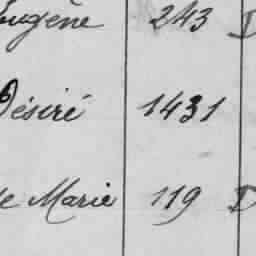 Eugène 243 D
Désiré 1431
e Marie 119 D